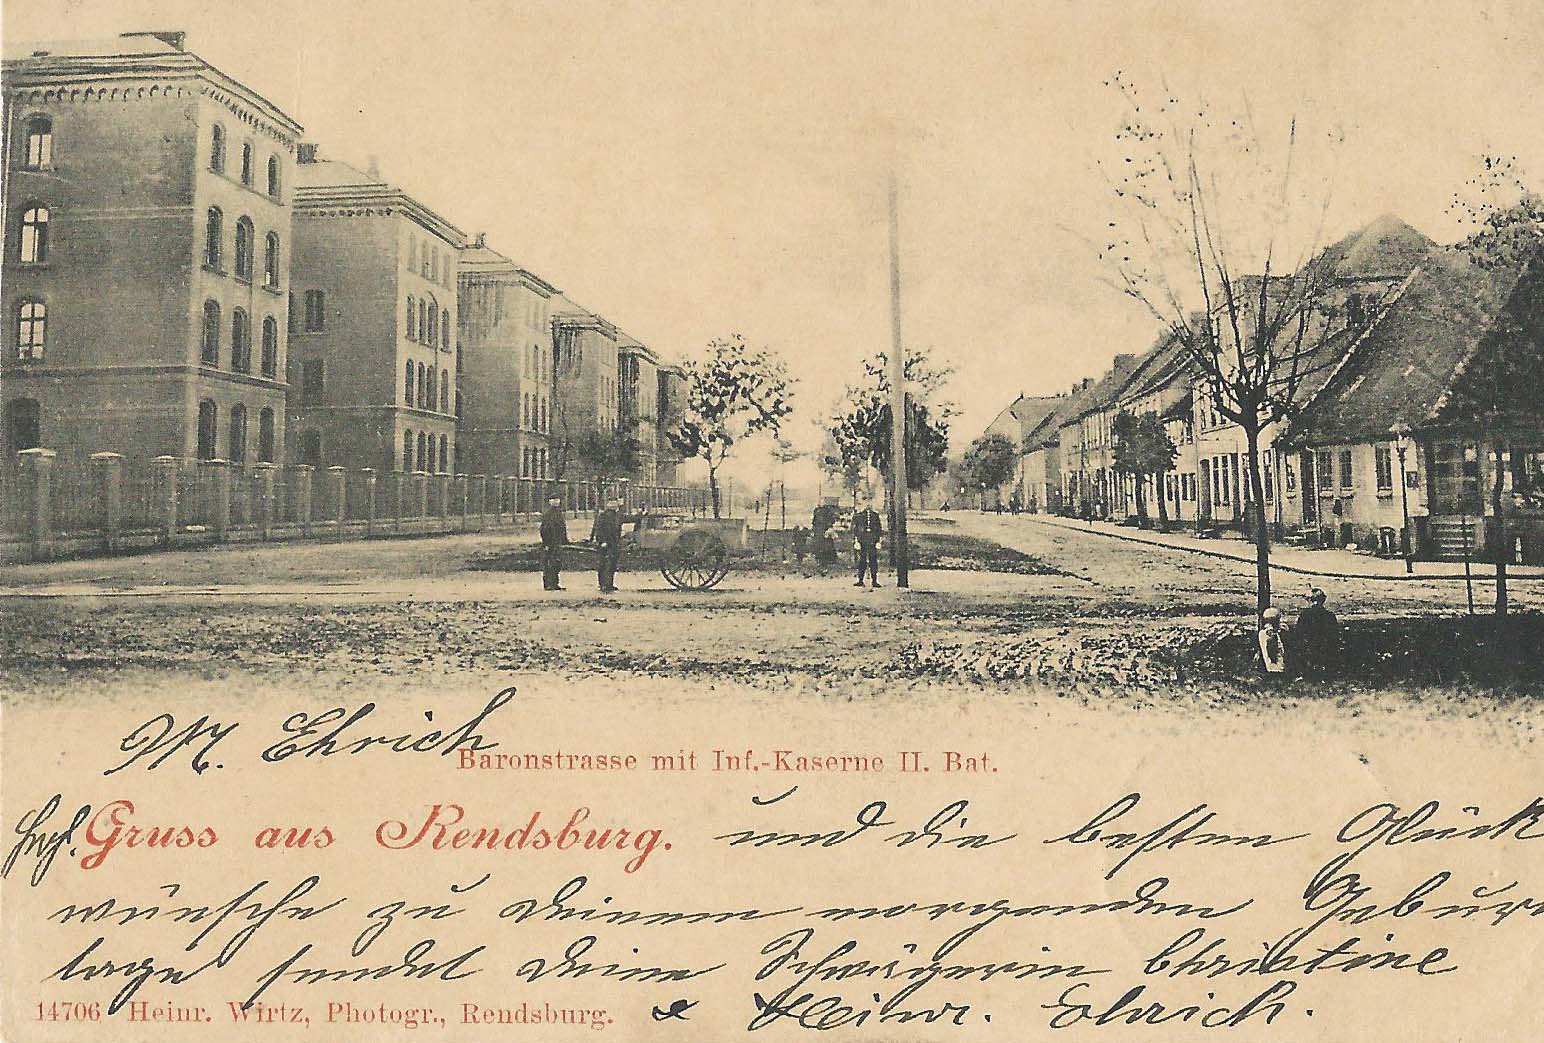 M. Ehrich
Baronstrasse mit Inf.-Kaserne II. Bat.
Hrzl. Gruss aus Rendsburg. und die besten Glück
wünsche zu deinem morgenden Gebur
tage sendet deine Schwägerin Christine
14706 Heinr. Wirtz, Photogr., Rendsburg. & Heinr. Ehrich.